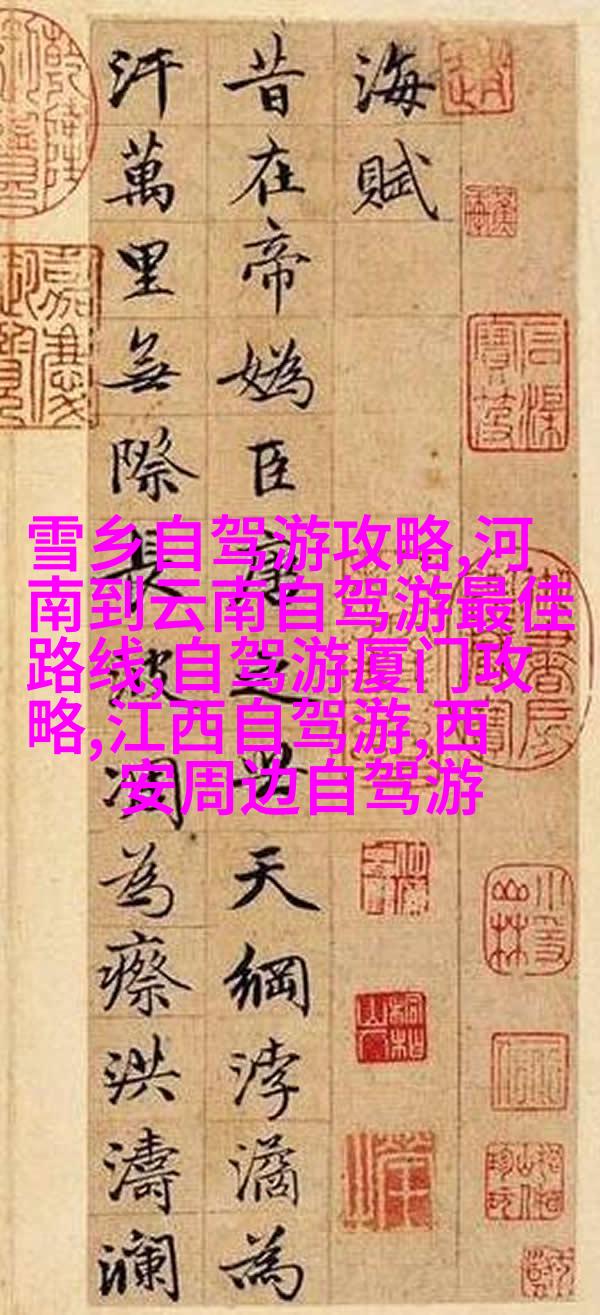 海賦
昔在帝媯臣唐之世天綱浡潏為
汗萬里無際長波凋為瘵洪濤瀾
雪乡自驾游攻略,河
南到云南自驾游最佳
路线,自驾游厦门攻
略,江西自驾游,西
安周边自驾游